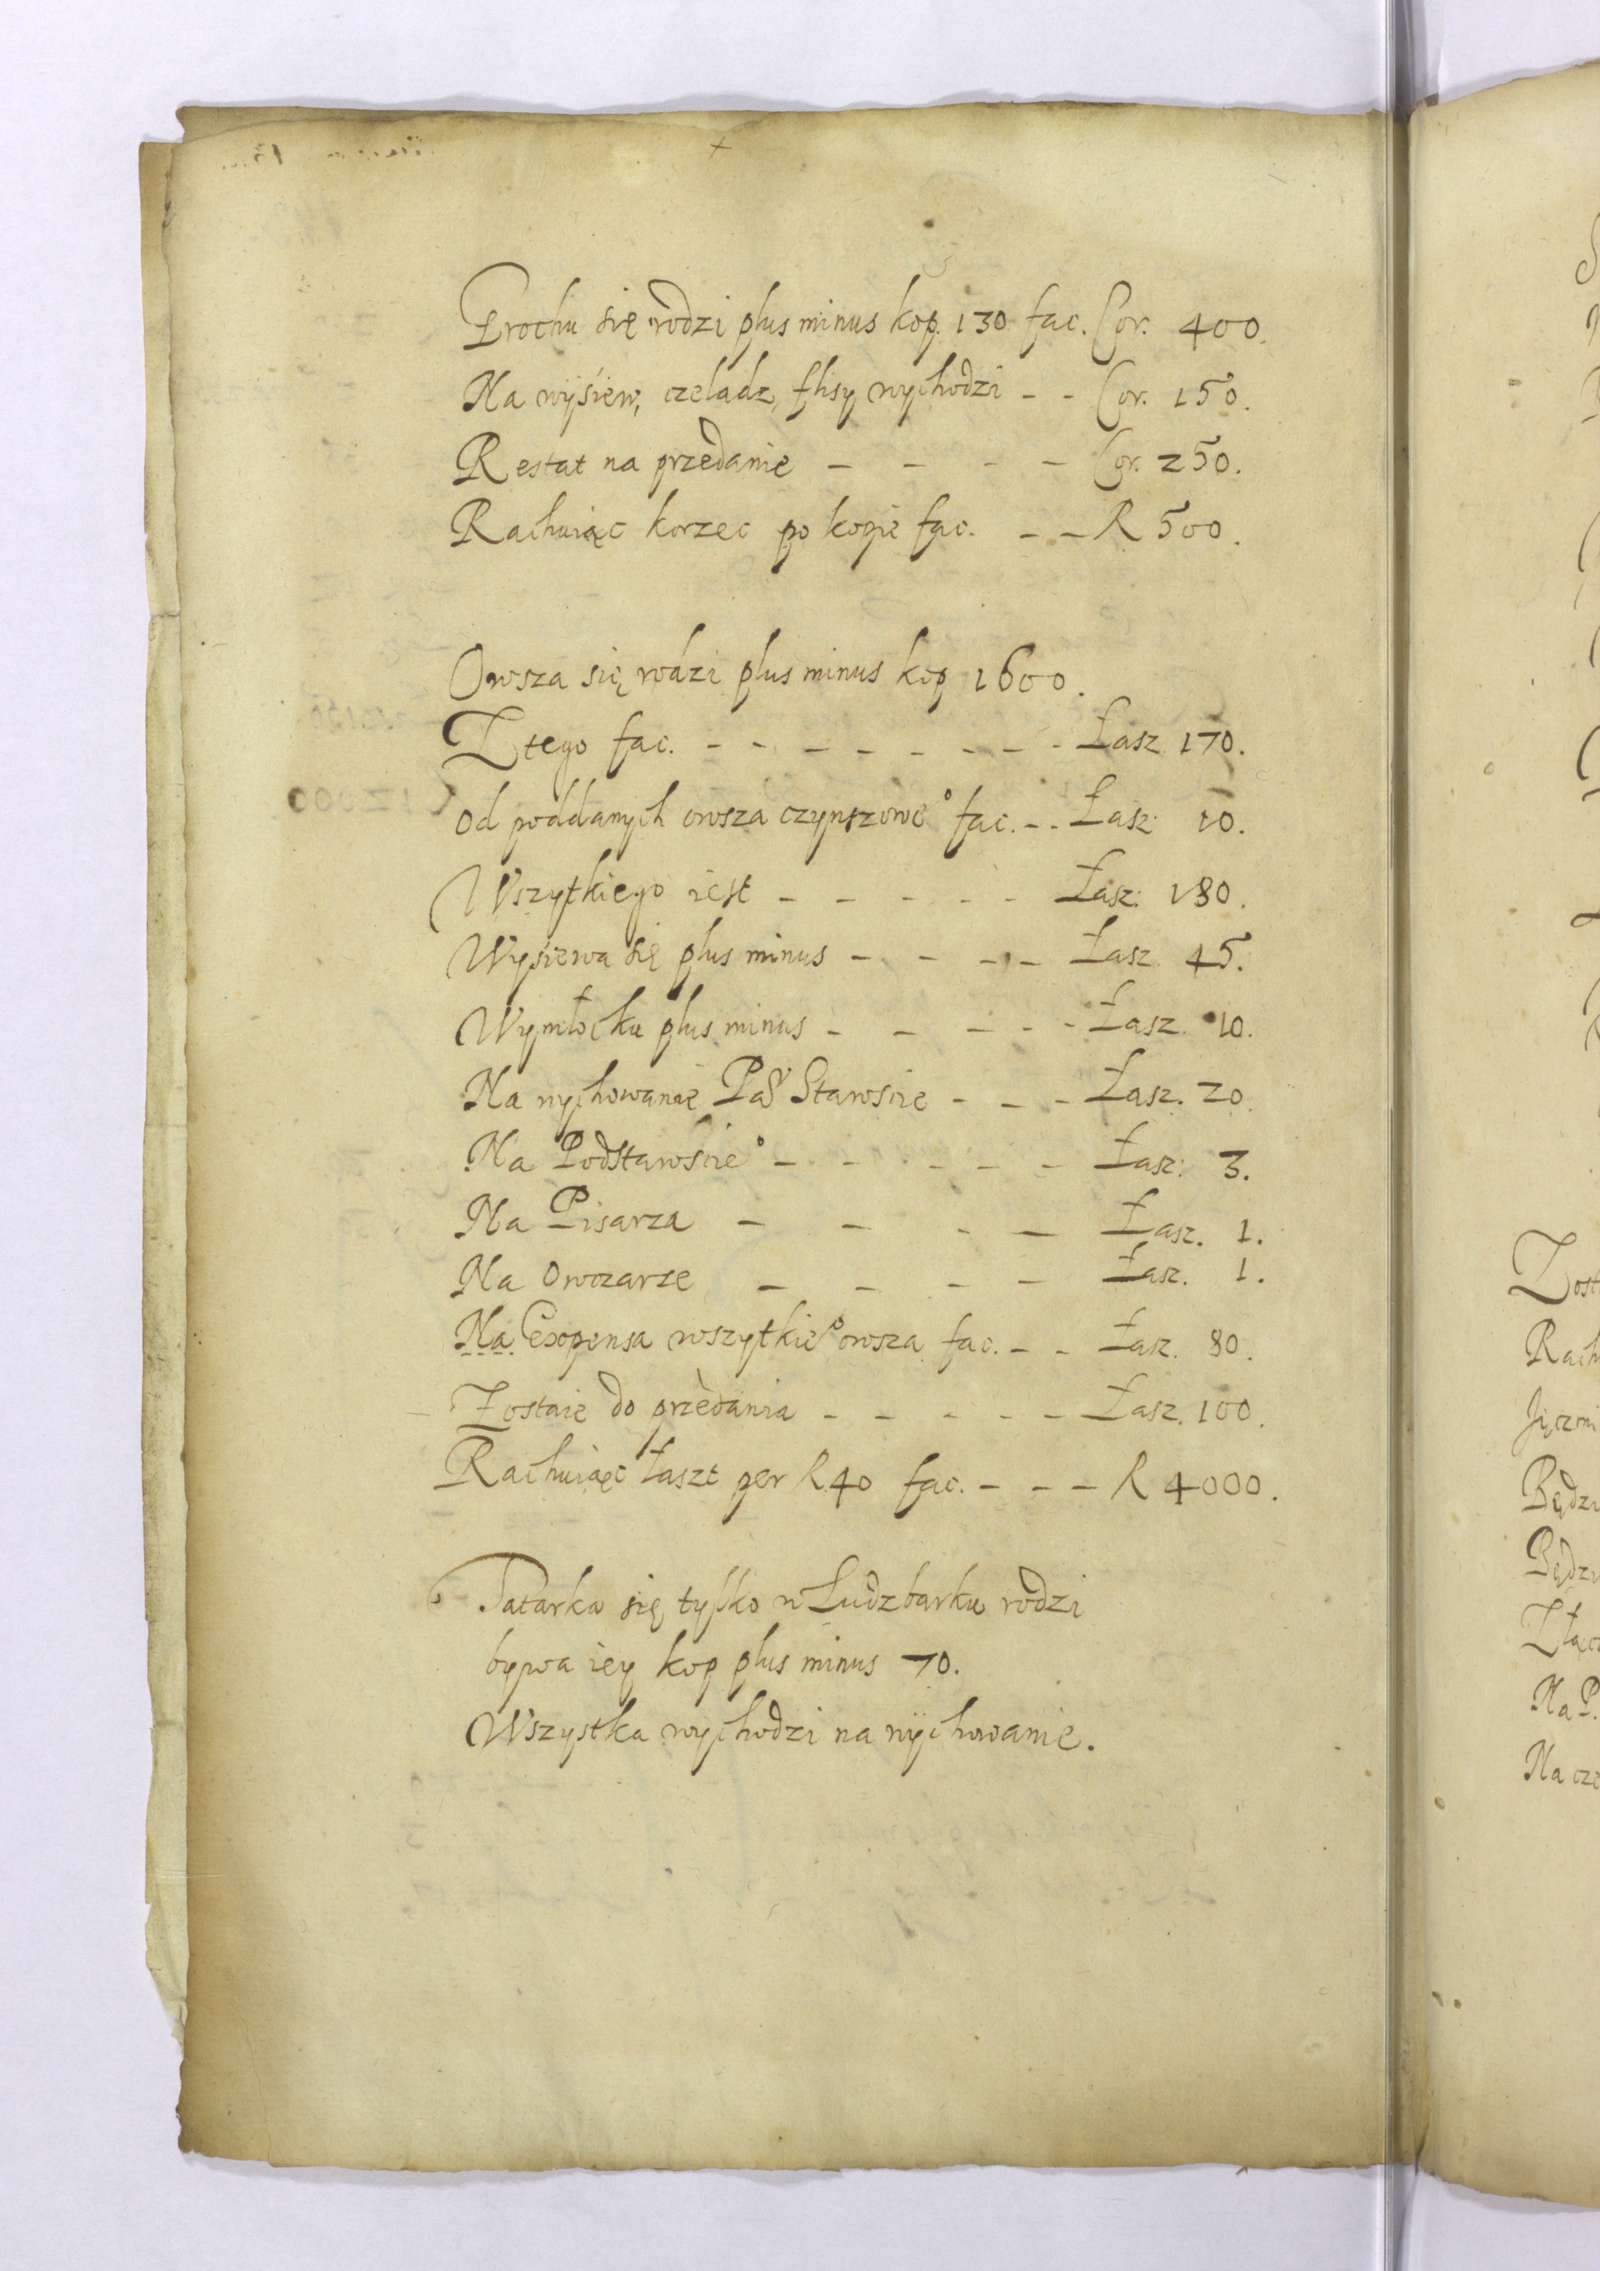 Grochu się rodzi plus minus kop. 130 fac. Cor. 400.
Na wyśiew, czeladz, flisy wychodzi - - Cor. 150.
Restat na przedanie - - - - Cor. 250.
Rachuiąc korzec po kopie fac. - - R 500.
Owsza się rodzi plus minus kop 1600.
Z tego fac. - - - - - - - - Łasz 170.
od poddanych owsza czynszowe° fac. - - Łasz 10.
Wszytkiego iest - - - - - Łasz: 180.
Wyśiewa się plus minus - - - - Łasz 45.
Wymłocku plus minus - - - - - Łasz. 10.
Na wychowanie Staroscie - - - Łasz. 20.
Na Podstaroście° - - - - - Łasz: 3.
Na Pisarza - - - - Łasz. 1.
Na Owczarze - - - - Łasz. 1.
Na Expensa wszytkie° owsza fac. - - Łasz. 80.
Zostaie do przedania - - - - - Łasz. 100.
Rachuiąc Łaszt per R 40 fac. - - - R 4000.
Tatarka się tylko w Ludzbarku rodzi
bywa iey kop plus minus 70.
Wszystka wychodzi na wychowanie.
Zost
Rach
Jęczmi
Będzi
Będzi
Złącz
Na P.
Na cze